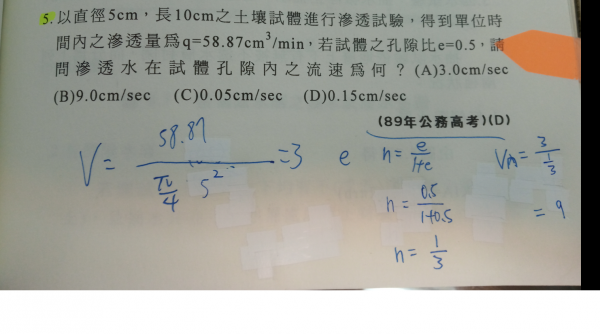 5.以直徑5cm，長10cm之土壤試體進行滲透試驗，得到單位時
間內之滲透量爲q=58.87cm³/min，若試體之孔隙比e=0.5，請
問滲透水在試體孔隙內之流速爲何？(A)3.0cm/sec
(B)9.0cm/sec (C)0.05cm/sec (D)0.15cm/sec
(89年公務高考)(D)
V= 58.87 / (π/4 5²) =3
e n= e/(1+e)
n= 0.5/(1+0.5)
n= 1/3
= 9